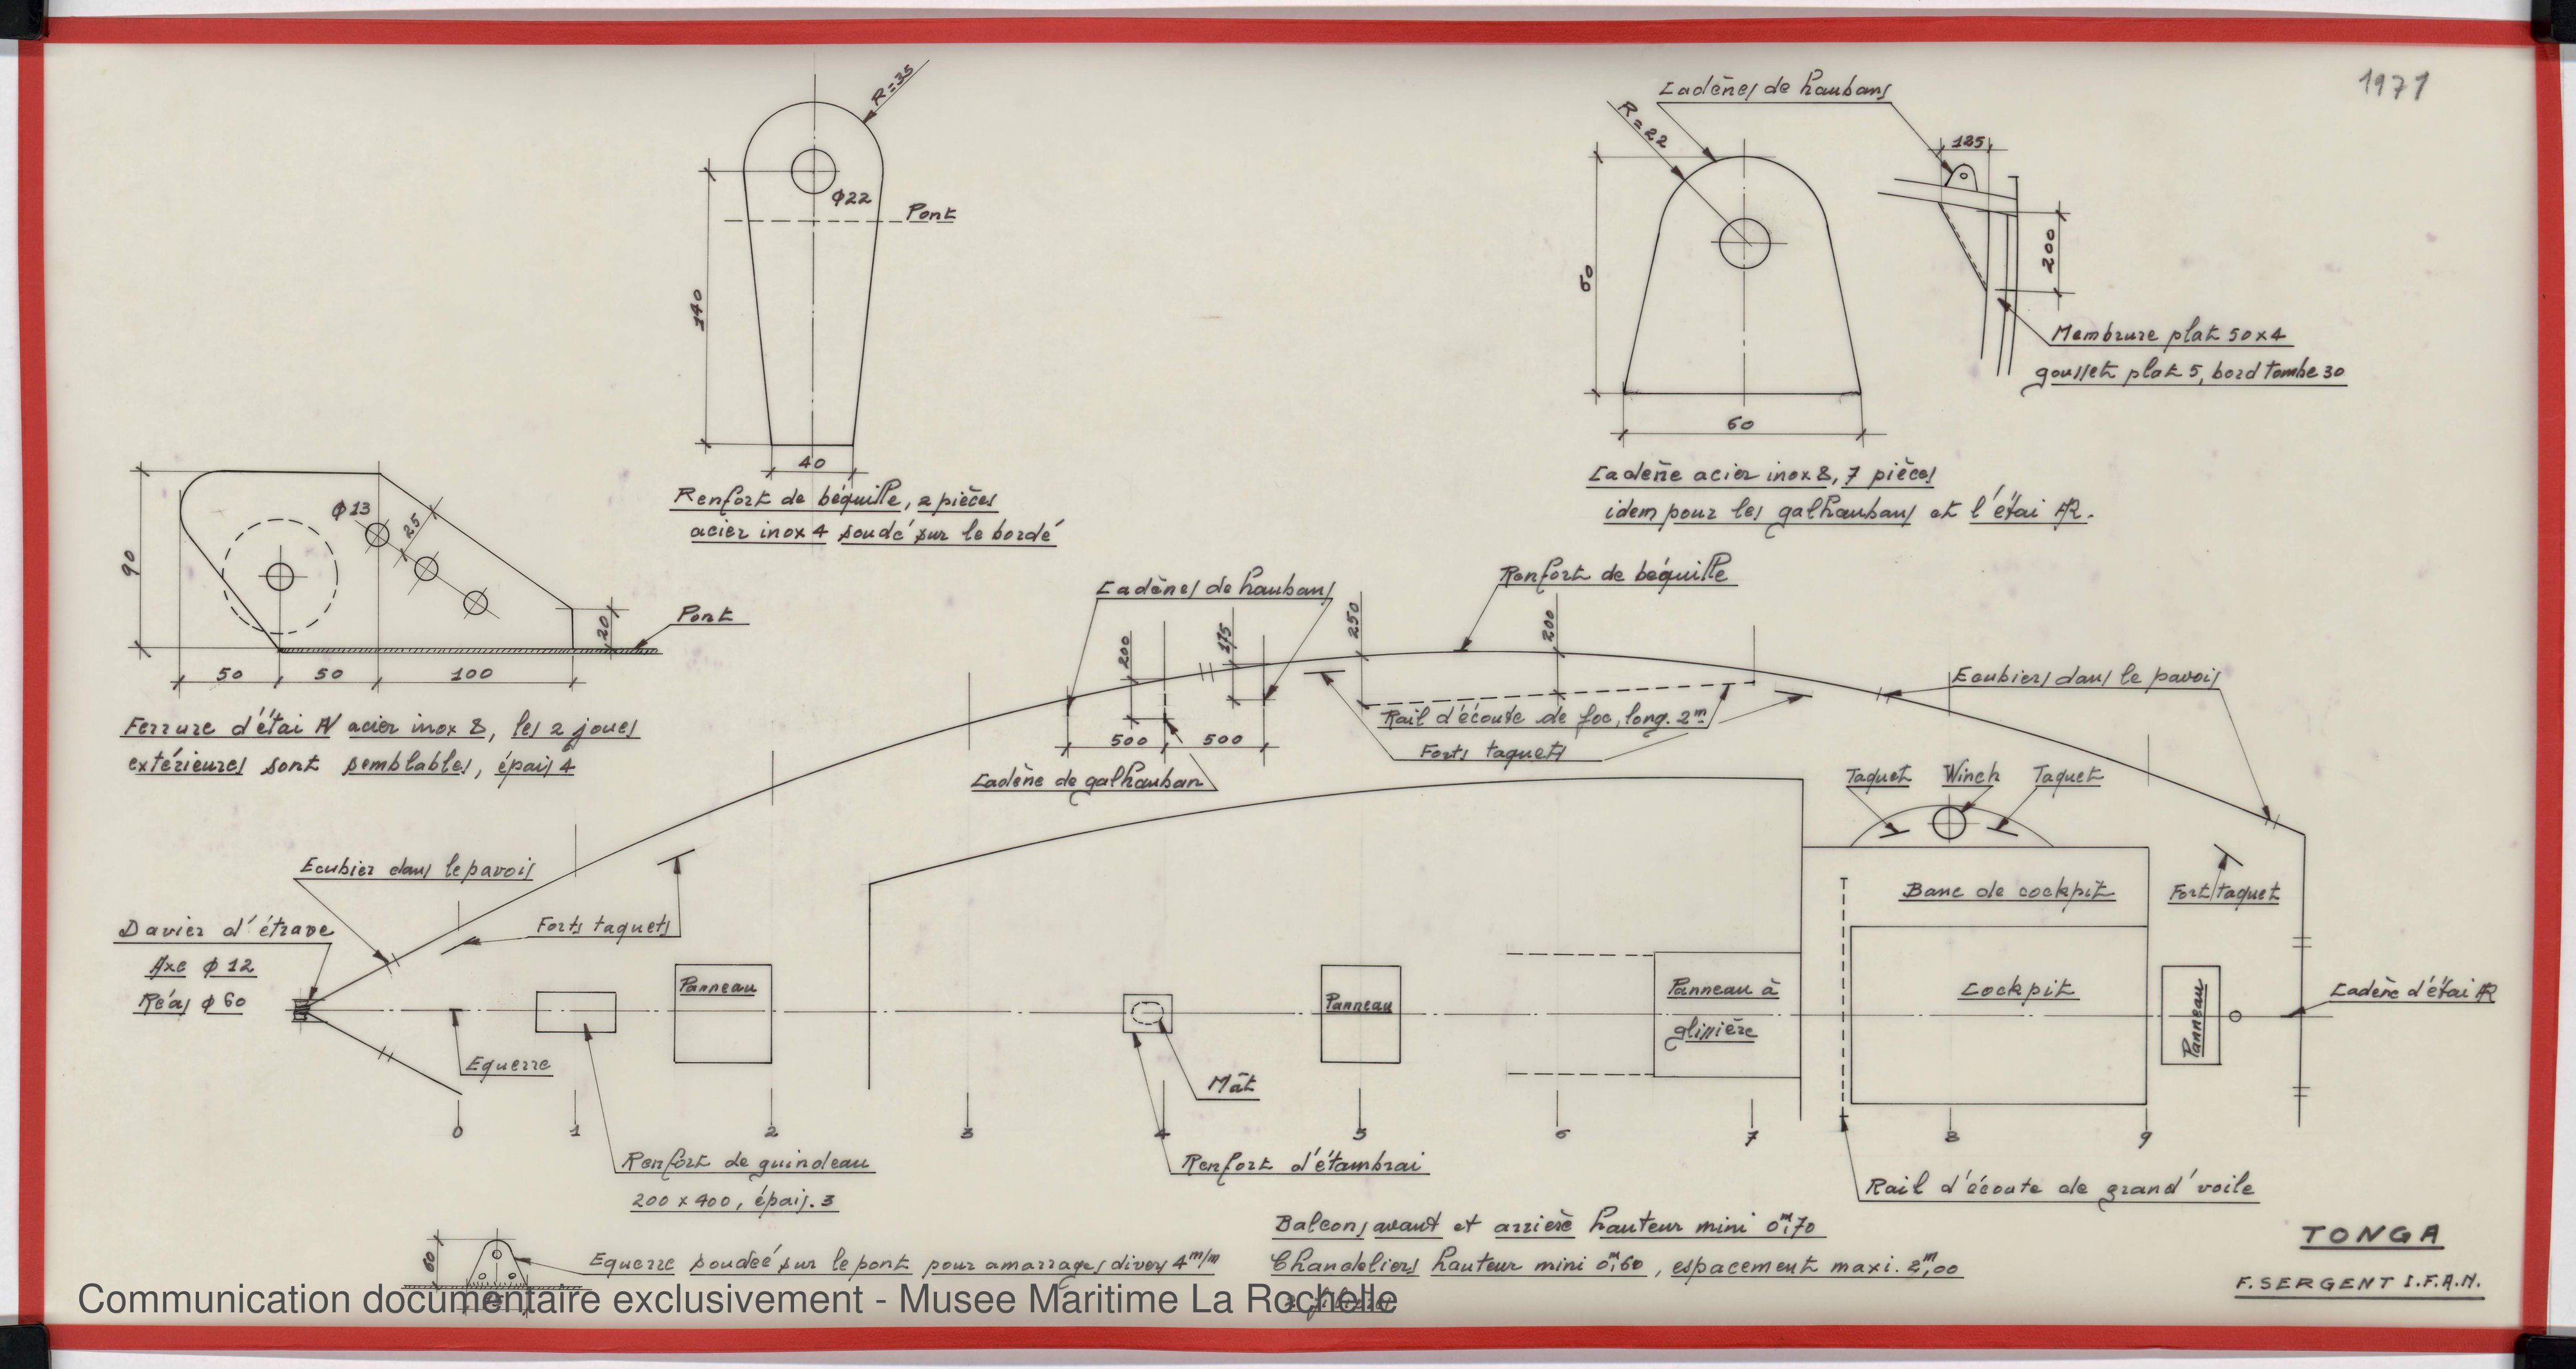 1971
R=35
Φ22
Pont
140
40
Renfort de béquille, 2 pièces
acier inox 4 soudé sur le bordé
Cadènes de haubans
R=22
60
60
125
200
Membrure plat 50x4
gousset plat 5, bord tombe 30
Cadène acier inox 8, 7 pièces
idem pour les galhaubans et l'étai AR.
90
Φ13
25
20
Pont
50 50 100
Ferrure d'étai AV acier inox 8, les 2 joues
extérieures sont semblables, épais 4
Cadènes de haubans
Renfort de béquille
200
175
250
200
500 500
Cadène de galhauban
Rail d'écoute de foc, long. 2m
Forts taquets
Ecubiers dans le pavois
Taquet Winch Taquet
Ecubier dans le pavois
Forts taquets
Davier d'étrave
Axe Φ 12
Réas Φ 60
Banc de cockpit
Fort taquet
Panneau
Panneau
Panneau à
glissière
Cockpit
Panneau
Cadène d'étai AR
Equerre
Mât
0 1 2 3 4 5 6 7 8 9
Renfort de guindeau
200 x 400, épais. 3
Renfort d'étambrai
Rail d'écoute de grand'voile
60
Equerre soudée sur le pont pour amarrages divers 4 m/m
Balcons avant et arrière hauteur mini 0m,70
Chandeliers hauteur mini 0m,60, espacement maxi. 2m,00
TONGA
F. SERGENT I.F.A.N.
Communication documentaire exclusivement - Musee Maritime La Rochelle